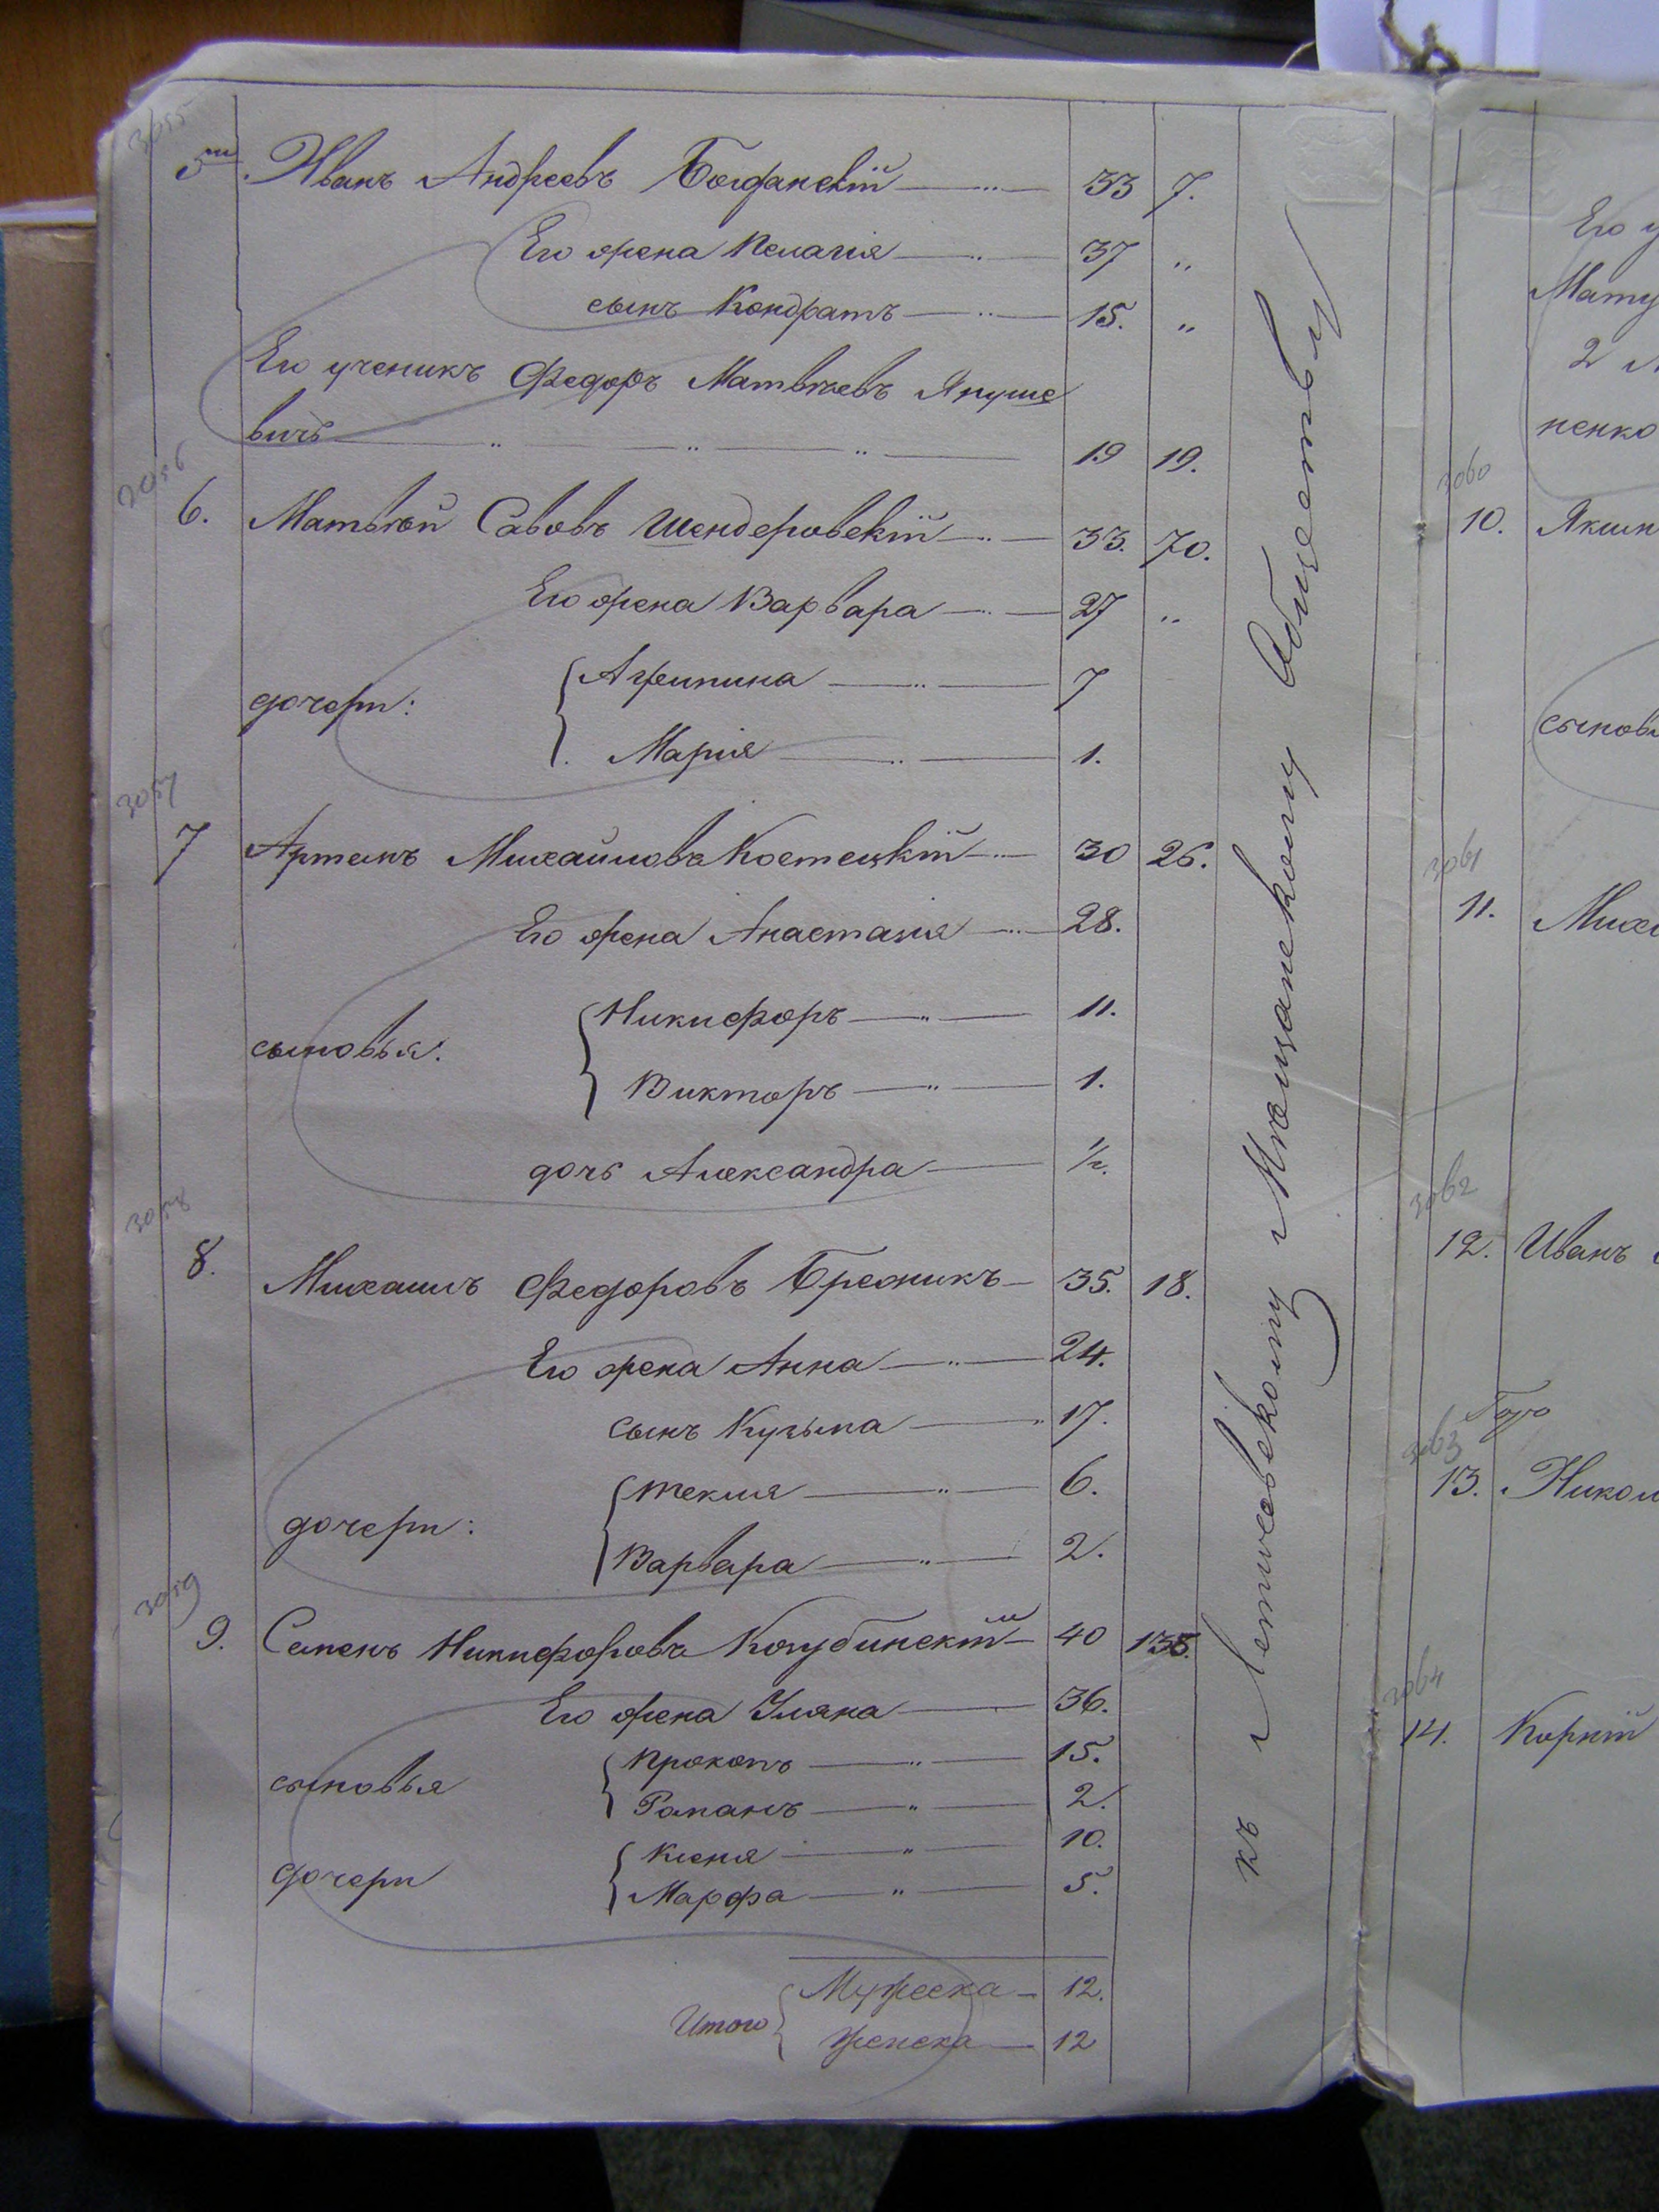 3055
5й Иванъ Андреевъ Богданскій 33 7.
Его жена Пелагія 37 „
сынъ Кондратъ 15. „
Его ученикъ Федоръ Матвѣевъ Януше
вичъ 19 19.
3056
6. Матвѣй Савовъ Шендеровскій 33. 70.
Его жена Варвара 27 „
дочери: Агрипина 7
Марія 1.
3057
7 Артемъ Михайловъ Костецкій 30 26.
Его жена Анастасія 28.
сыновья: Никифоръ 11.
Викторъ 1.
дочь Александра 1/2.
3058
8. Михаилъ Федоровъ 35. 18.
Его жена Анна 24.
сынъ Кузьма 17.
дочери: Текля 6.
Варвара 2.
3059
9. Семенъ Никифоровъ Голубинскій 40 135.
Его жена Уляна 36.
сыновья Прокопъ 15.
Романъ 2.
дочери Ксеня 10.
Марфа 5.
Итого Мужеска 12.
Женска 12
къ Летичевскому Мѣщанскому Обществу
Его у
Мату
2
ненко
3060
10. Яким
сыновь
3061
11. Миха
3062
12. Иванъ
3063
13. Никол
3064
14. Корній